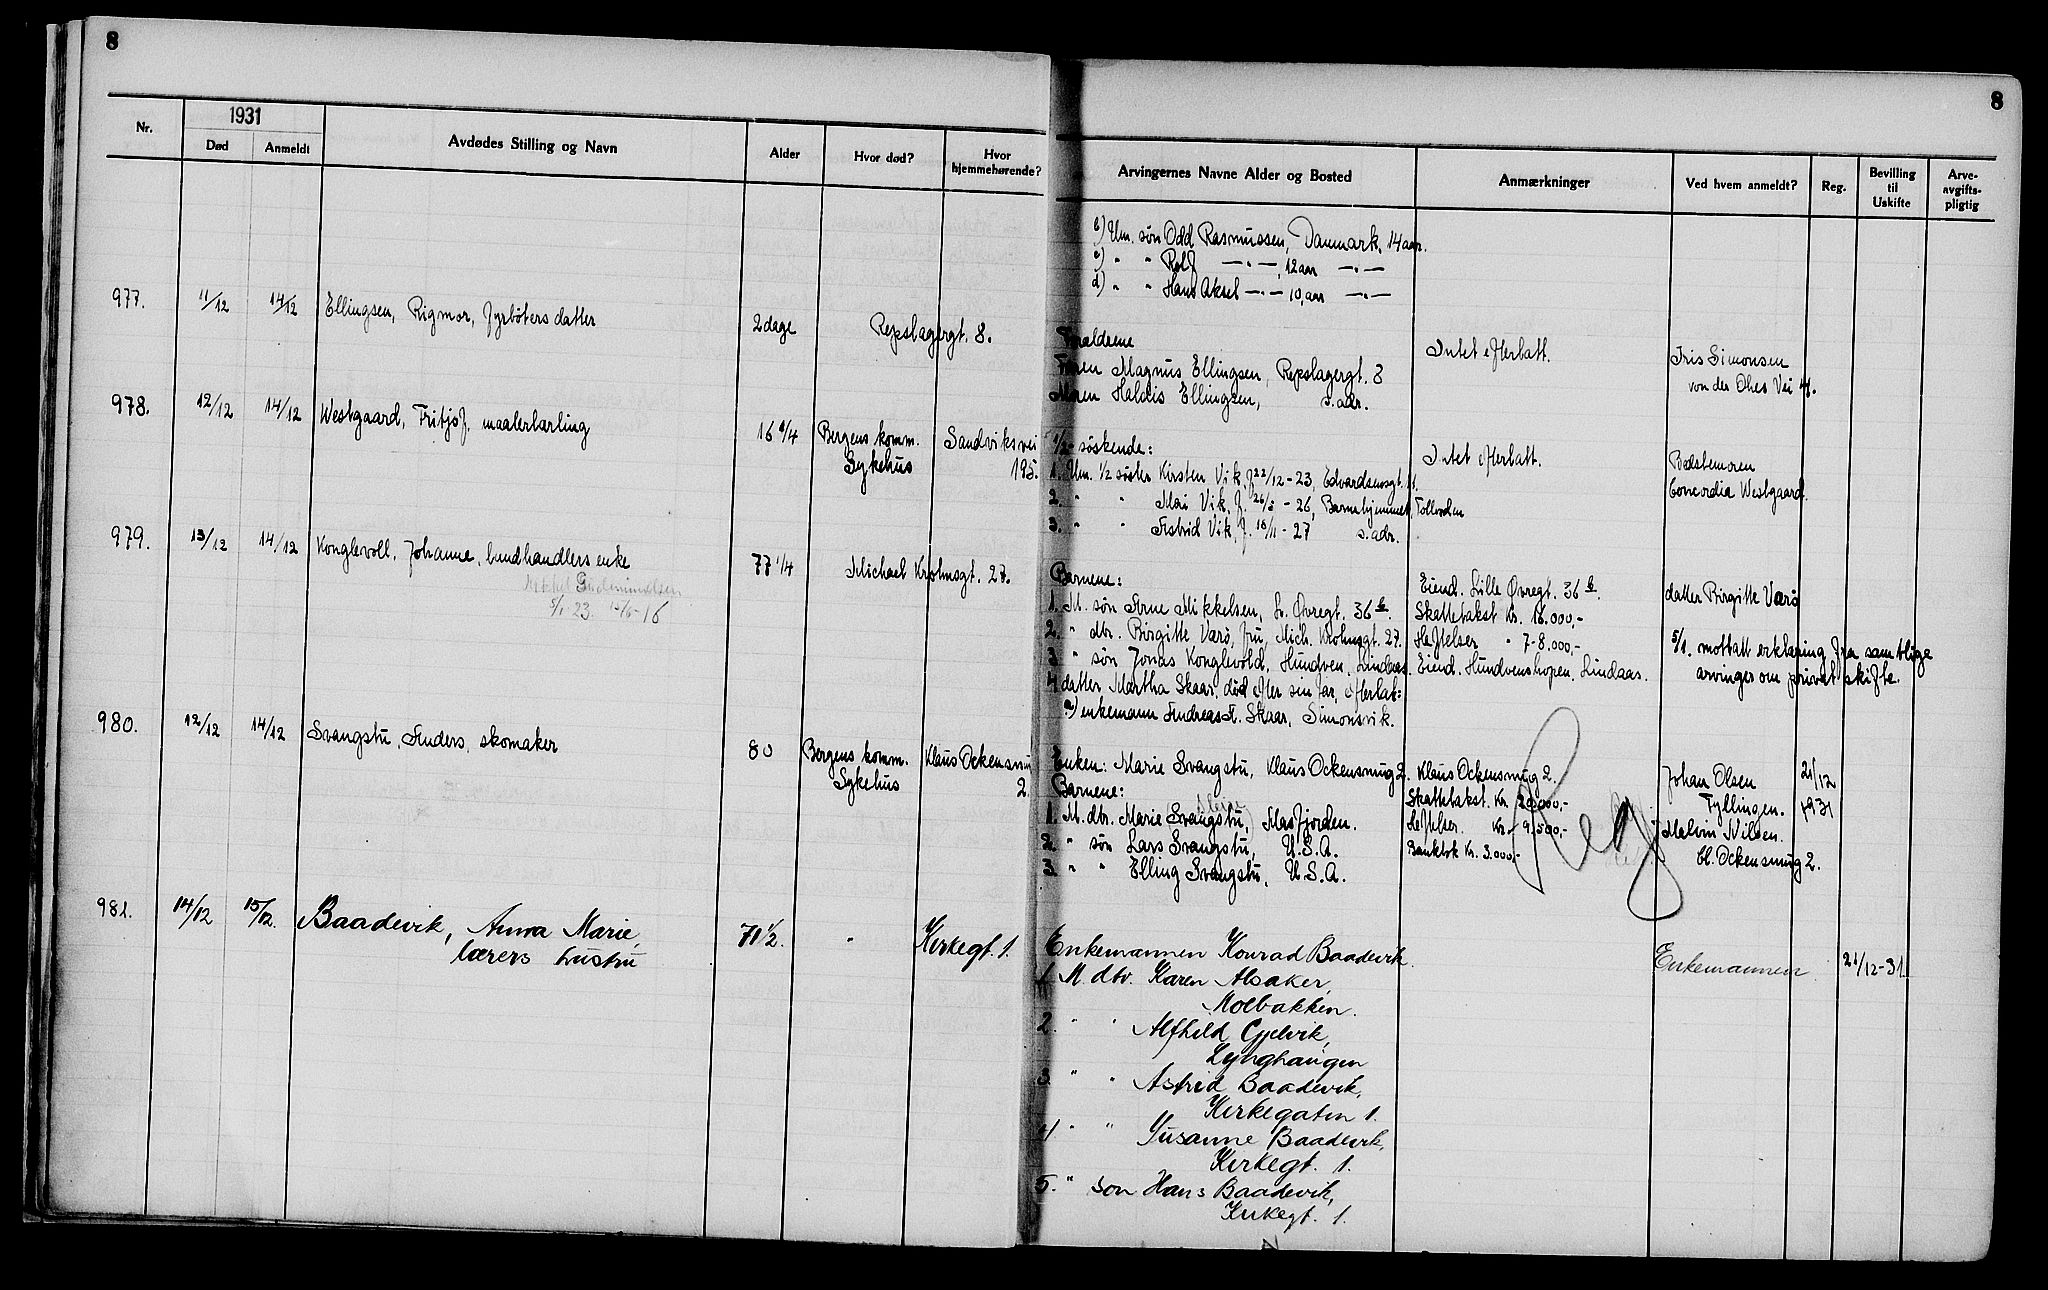 8
8
Nr.
1931
Død
Anmeldt
Avdødes Stilling og Navn
Alder
Hvor død?
Hvor
hjemmehørende?
Arvingernes Navne Alder og Bosted
Anmærkninger
Ved hvem anmeldt?
Reg.
Bevilling
til
Uskifte
Arve-
avgifts-
pligtig
b) Um. søn Odd Rasmussen, Danmark, 14 aar.
c) " " Rolf —"—, 12 aar —"—
d) " " Hans Aksel —"— 10 aar —"—
977. 11/12 14/12 Ellingsen, Rigmor, fyrbøters datter 2 dage Repslagergt. 8.
Foraldrene
Faren Magnus Ellingsen, Repslagergt. 8
Moren Haldis Ellingsen, s. adr.
Intet efterlatt.
Iris Simonsen
von der Ohes Vei 4.
978. 12/12 14/12 Westgaard, Fritjof, malerlærling 16 1/4
Bergens komm.
Sykehus
Sandviksvei
195.
1/2-søskende:
1. Um. 1/2 søster Kirsten Vik, f. 22/12-23, Edvardsensgt. 11.
2. " " Mai Vik, f. -26, Barnehjemmet,
3. " " Astrid Vik, f. 18/11-27 s. adr.
Intet efterlatt.
Bedstemoren
Concordia Westgaard.
979. 13/12 14/12 Konglevoll, Johanne, hundhandlers enke 77 1/4 Michael Krohnsgt. 27.
5/1 23. -16
Barnene:
1. M. søn Arne Mikkelsen, L. Øvregt. 36 b.
2. " dtr. Birgitte Varø, fru, Mich. Krohnsgt. 27.
3. " søn Jonas Konglevold, Hundven, Lindaas.
4. datter Martha Skaar, død efter sin far, efterlat:
a) enkemann Andreas A. Skaar, Simonsvik.
Eiend. Lille Øvregt. 36 b.
Skattetakst Kr. 18.000,-
Heftelser " 7-8.000,-
Eiend. Hundvenshopen, Lindaas.
datter Birgitte Varø
5/1. mottatt erklæring fra samtlige
arvinger om privat skifte.
980. 12/12 14/12 Svangstu, Anders, skomaker 80
Bergens komm.
Sykehus
Klaus Ockensmug
2.
Enken: Marie Svangstu, Klaus Ockensmug 2.
Barnene:
1. M. dtr. Marie Svangstu, Masfjorden.
2. " søn Lars Svangstu, U.S.A.
3. " " Elling Svangstu, U.S.A.
Klaus Ockensmug 2.
Skattetakst. Kr. 20.000,-
Heftelser. Kr. 9.500,-
Bankbok Kr. 3.000,-
Reg
Johan Olsen
Fyllingen.
Malvin Nilsen.
Cl. Ockensmug 2.
21/12
1931
981. 14/12 15/12. Baadevik, Anna Marie,
lærers hustru
71 1/2. " Kirkegt. 1.
Enkemannen Konrad Baadevik.
1. M. dtr. Karen Alsaker,
Molbakken.
2. " " Alfhild Gjelvik,
Lynghaugen
3. " " Astrid Baadevik,
Kirkegaten 1.
4. " " Susanne Baadevik,
Kirkegt. 1.
5. " søn Hans Baadevik,
Kirkegt. 1.
Enkemannen 21/12-31